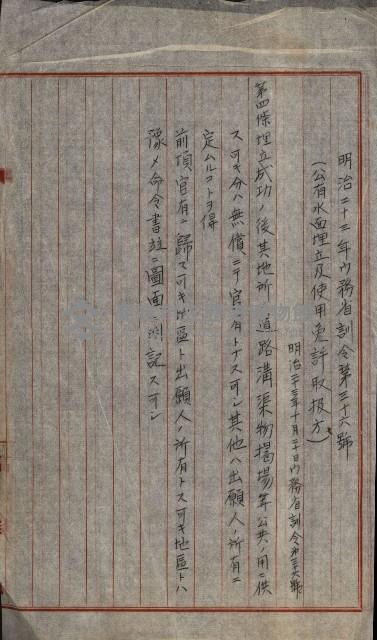 明治二十三年内務省訓令第三十六號
(公有水面埋立及使用免許取扱方)
明治二十三年十月二十日内務省訓令第三六號
第四條埋立成功ノ後其地所ノ道路溝渠物揚場等公共ノ用ニ供
スヘキ分ハ無償ニテ官有トナスヘシ其他ハ出願人ノ所有ニ
定ムルコトヲ得
前項官有ニ歸スヘキ地區ト出願人ノ所有トスヘキ地區トハ
豫メ命令書並ニ圖面ニ明記スヘシ